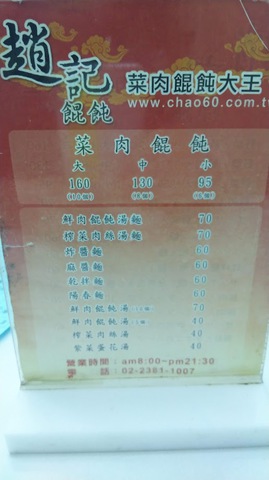 趙記
餛飩
菜肉餛飩大王
www.chao60.com.t
菜肉餛飩
大 中 小
160 130 95
鮮肉餛飩湯麵 70
榨菜肉絲湯麵 70
炸醬麵 60
麻醬麵 60
乾拌麵 60
陽春麵 60
鮮肉餛飩湯 70
鮮肉餛飩湯 40
榨菜肉絲湯 40
紫菜蛋花湯 40
營業時間：am8:00~pm21:30
電話：02-2381-1007